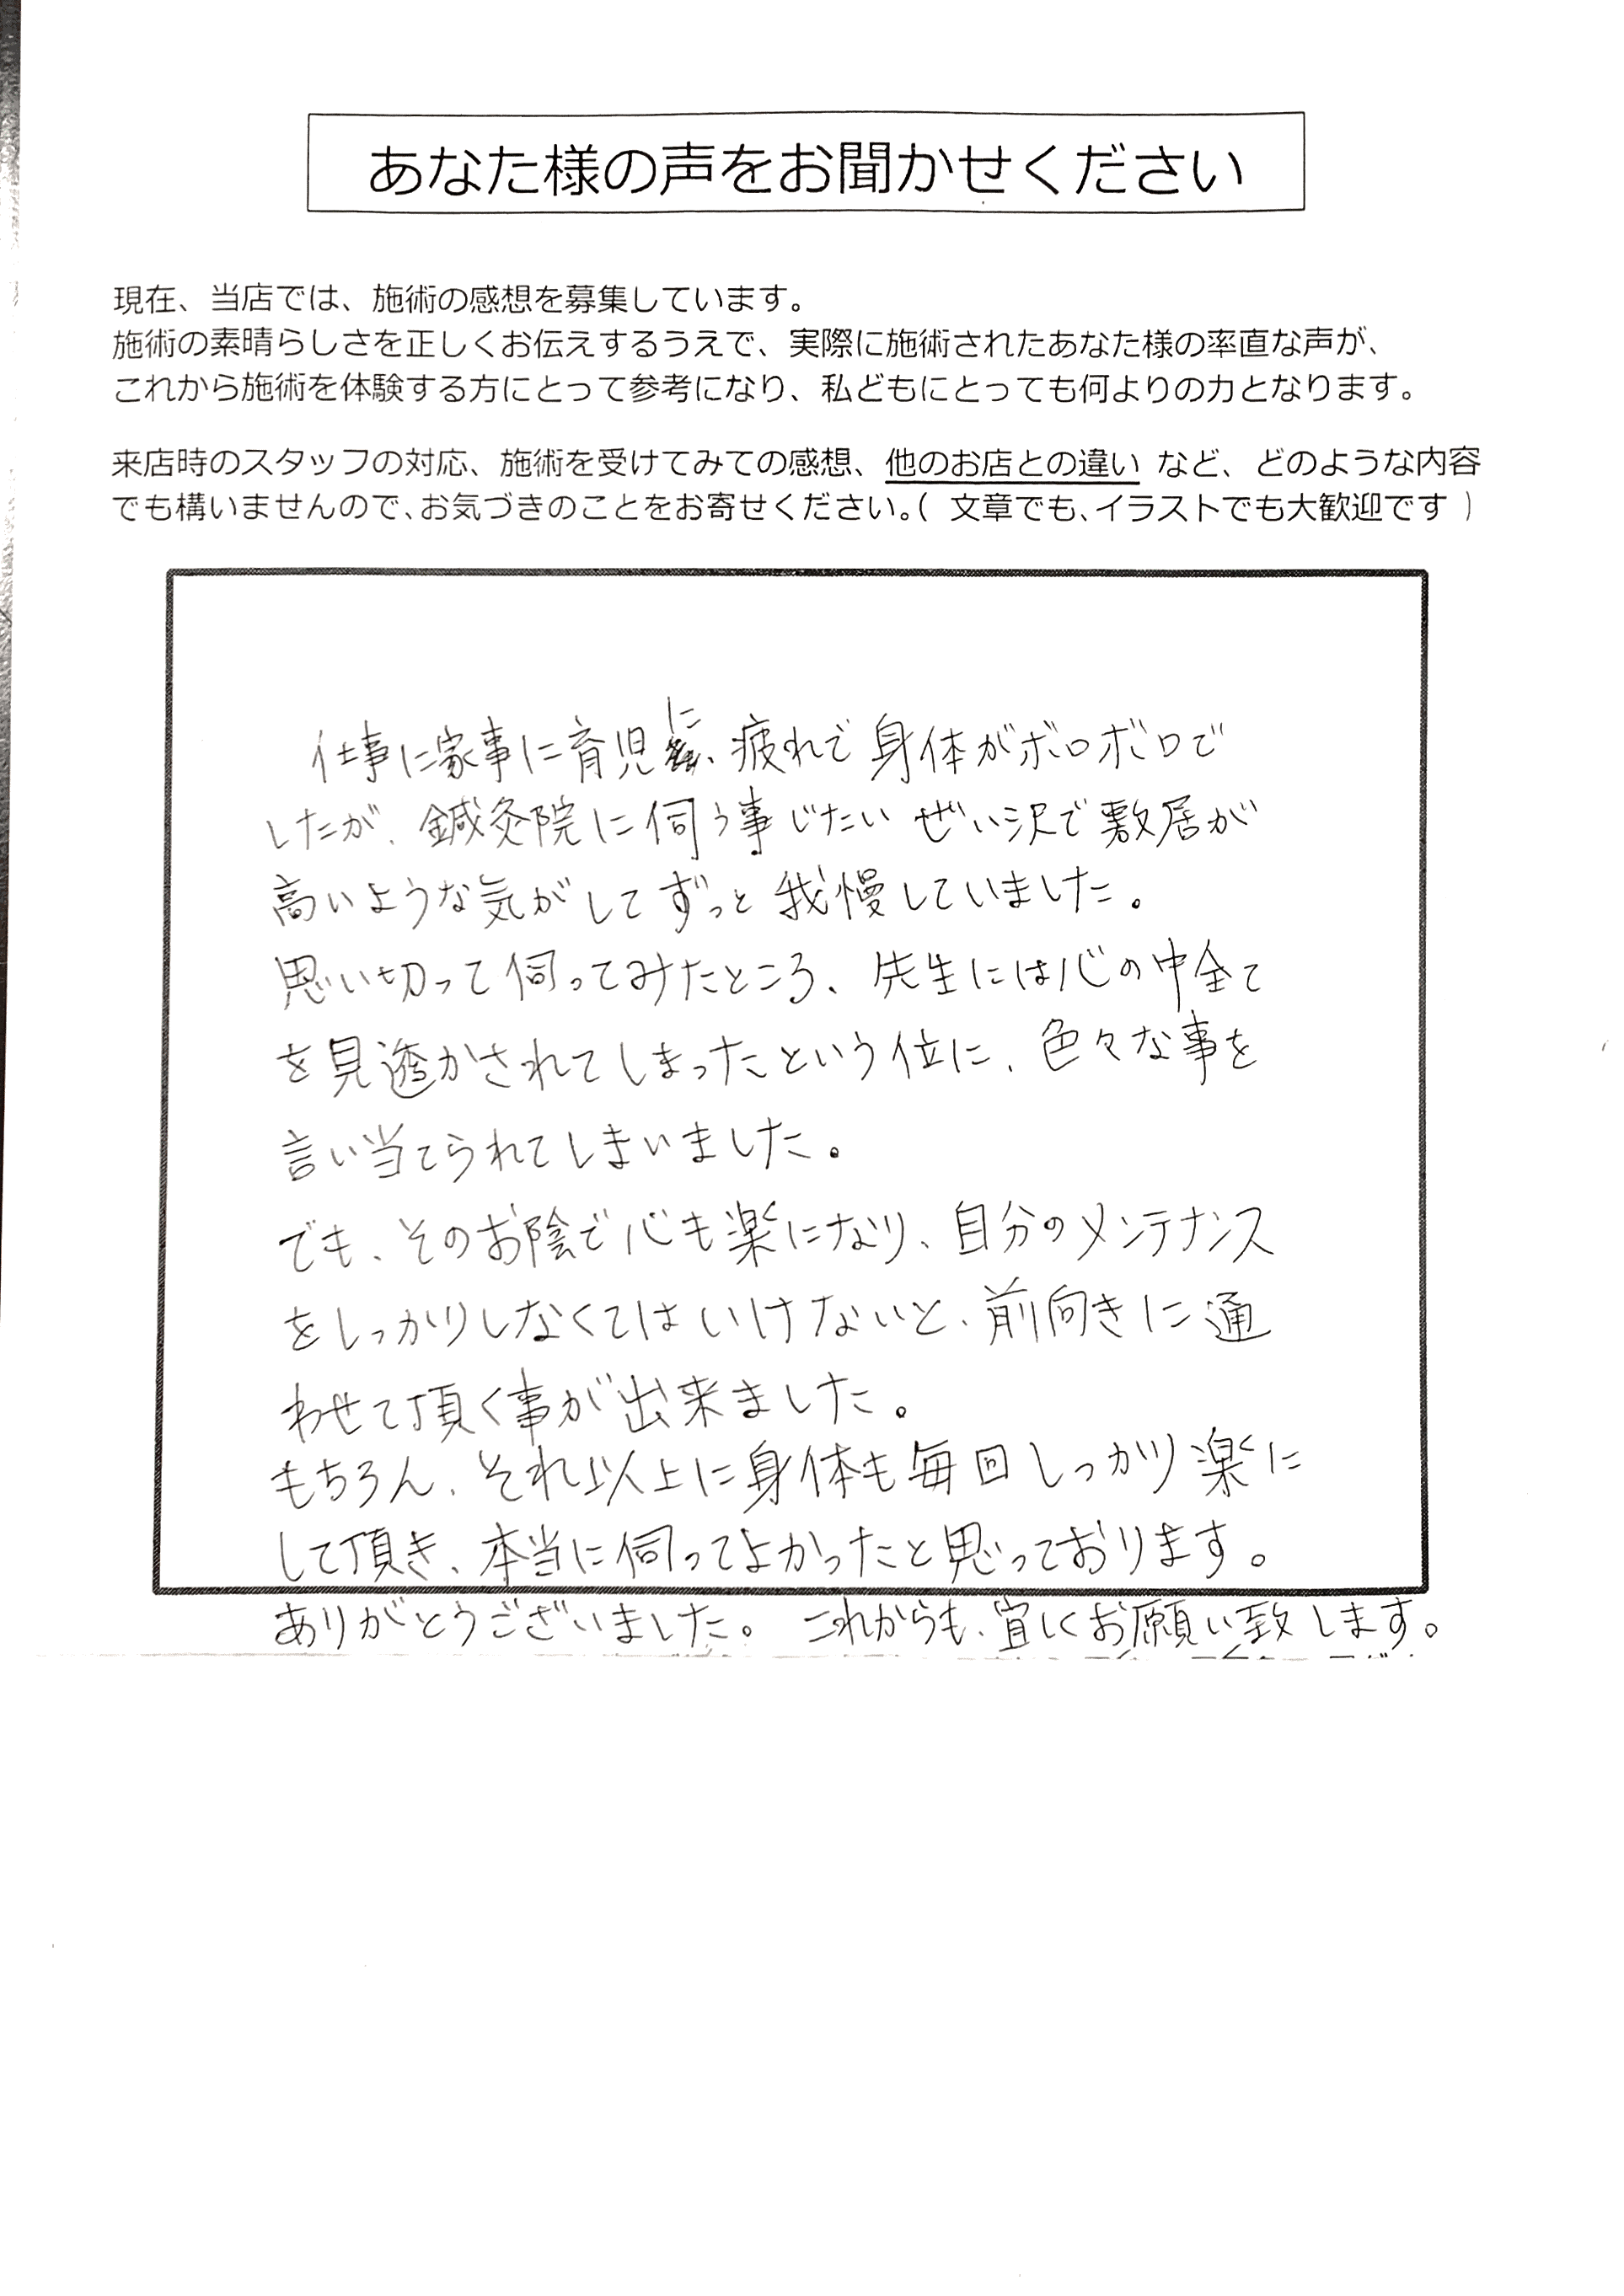 あなた様の声をお聞かせください
現在、当店では、施術の感想を募集しています。
施術の素晴らしさを正しくお伝えするうえで、実際に施術されたあなた様の率直な声が、
これから施術を体験する方にとって参考になり、私どもにとっても何よりの力となります。
来店時のスタッフの対応、施術を受けてみての感想、他のお店との違い など、どのような内容
でも構いませんので、お気づきのことをお寄せください。( 文章でも、イラストでも大歓迎です )
仕事に家事に育児に、疲れで身体がボロボロで
したが、鍼灸院に伺う事じたいぜい沢で敷居が
高いような気がしてずっと我慢していました。
思い切って伺ってみたところ、先生には心の中全て
を見透かされてしまったという位に、色々な事を
言い当てられてしまいました。
でも、そのお陰で心も楽になり、自分のメンテナンス
をしっかりしなくてはいけないと、前向きに通
わせて頂く事が出来ました。
もちろん、それ以上に身体も毎回しっかり楽に
して頂き、本当に伺ってよかったと思っております。
ありがとうございました。 これからも、宜しくお願い致します。